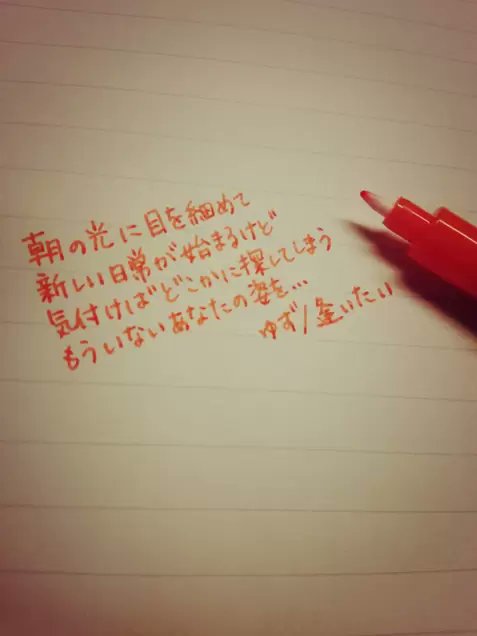 朝の光に目を細めて
新しい日常が始まるけど
気付けばどこかに探してしまう
もういないあなたの姿を…
ゆず/逢いたい